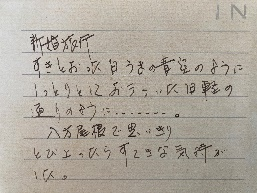 IN
新婚旅行
すきとおった白うさの青空のように
しっとりとしておちついた日軽の
通りのように………。
八方尾根で思いきり
とび上ったらすてきな気持が
した。